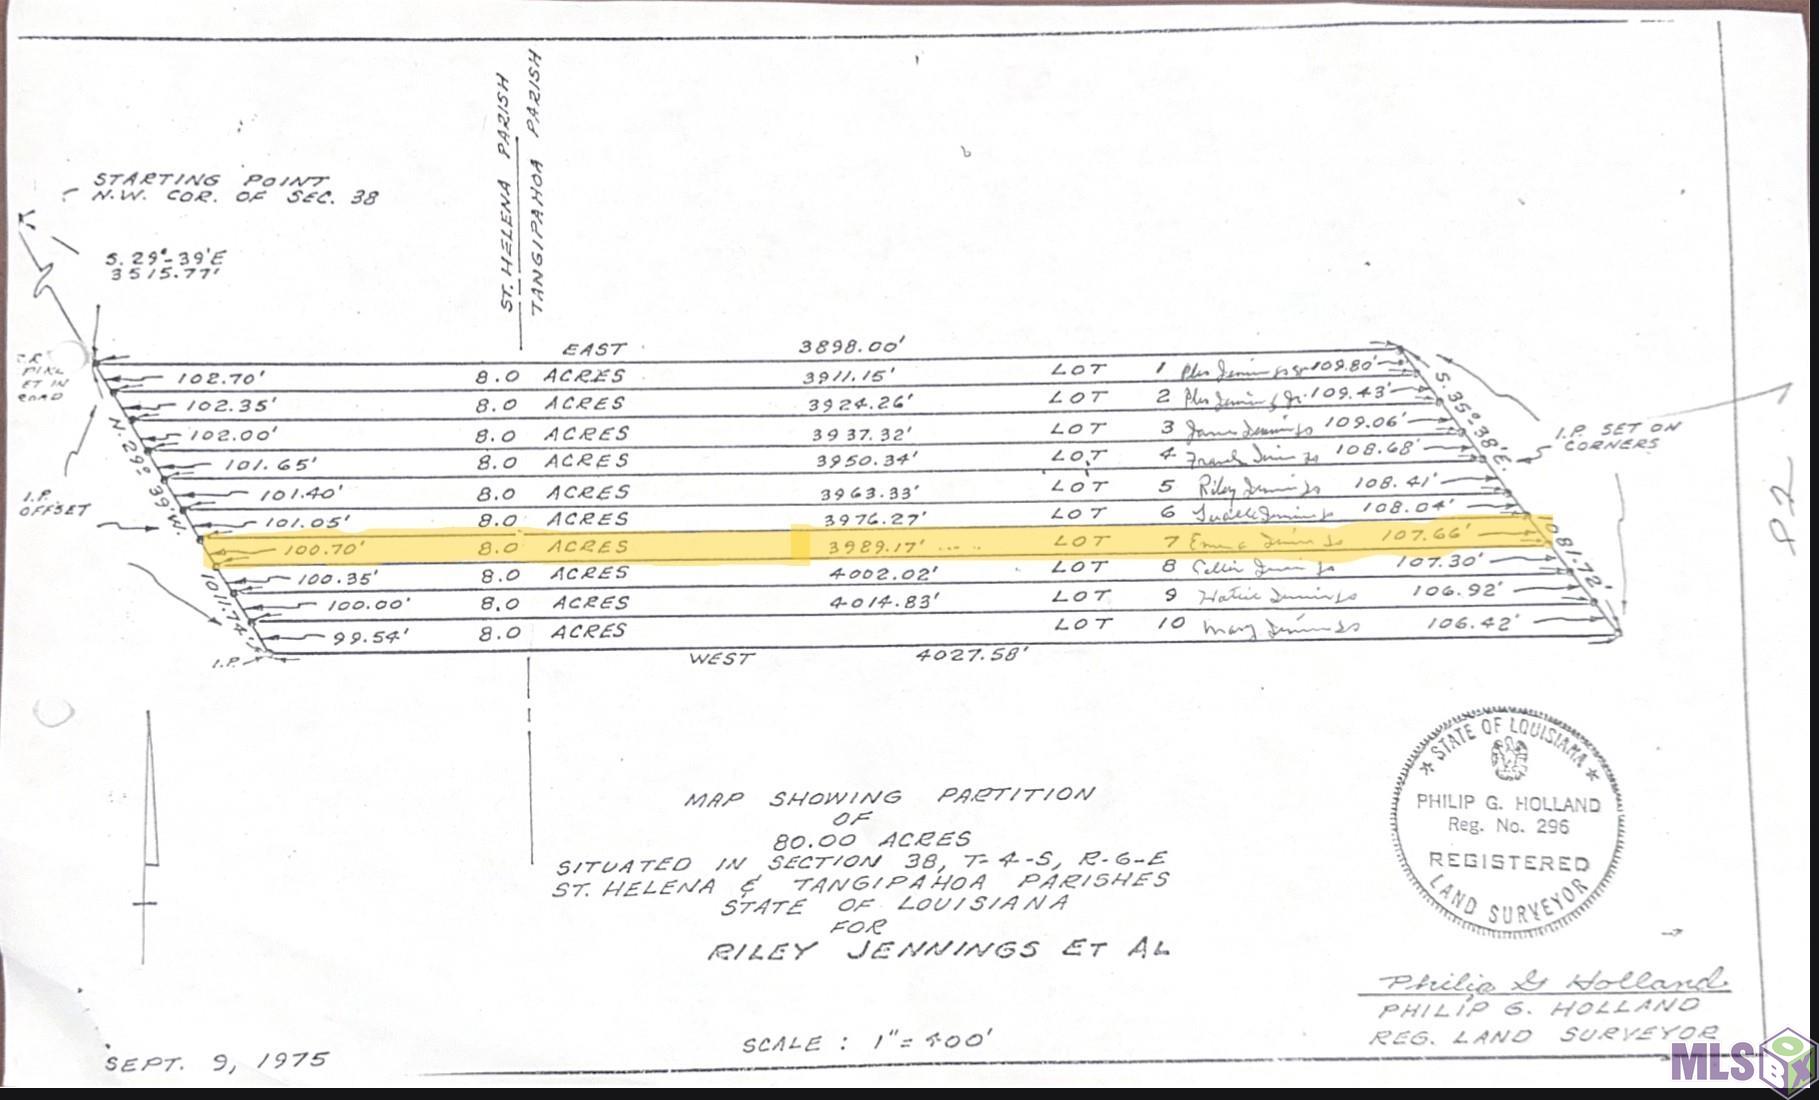 ST. HELENA PARISH
TANGIPAHOA PARISH
STARTING POINT
N.W. COR. OF SEC. 38
S. 29°-39'E
3515.77'
EAST 3898.00'
102.70' 8.0 ACRES 3911.15' LOT 1 109.80'
102.35' 8.0 ACRES 3924.26' LOT 2 109.43'
102.00' 8.0 ACRES 3937.32' LOT 3 James Jennings 109.06'
101.65' 8.0 ACRES 3950.34' LOT 4 Frank Jennings 108.68'
101.40' 8.0 ACRES 3963.33' LOT 5 Riley Jennings 108.41'
101.05' 8.0 ACRES 3976.27' LOT 6 108.04'
100.70' 8.0 ACRES 3989.17' LOT 7 107.66'
100.35' 8.0 ACRES 4002.02' LOT 8 107.30'
100.00' 8.0 ACRES 4014.83' LOT 9 Hattie Jennings 106.92'
99.54' 8.0 ACRES LOT 10 Mary Jennings 106.42'
WEST 4027.58'
ET IN
ROAD
N. 29° 39'W.
1011.74'
I.P.
OFFSET
I.P.
S. 35° 38' E.
1081.72'
I.P. SET ON
CORNERS
P2
MAP SHOWING PARTITION
OF
80.00 ACRES
SITUATED IN SECTION 38, T-4-S, R-6-E
ST. HELENA & TANGIPAHOA PARISHES
STATE OF LOUISIANA
FOR
RILEY JENNINGS ET AL
SCALE : 1" = 400'
SEPT. 9, 1975
STATE OF LOUISIANA
PHILIP G. HOLLAND
Reg. No. 296
REGISTERED
LAND SURVEYOR
Philip G Holland
PHILIP G. HOLLAND
REG. LAND SURVEYOR
MLSBOX